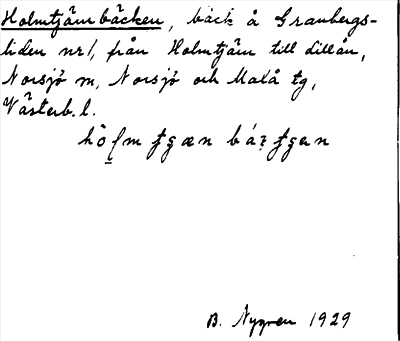 Holmtjärnbäcken, bäck å Granbergs-
liden nr 1, från Holmtjärn till Lillån,
Norsjö sn, Norsjö och Malå tg,
Västerb. l.
B. Nygren 1929